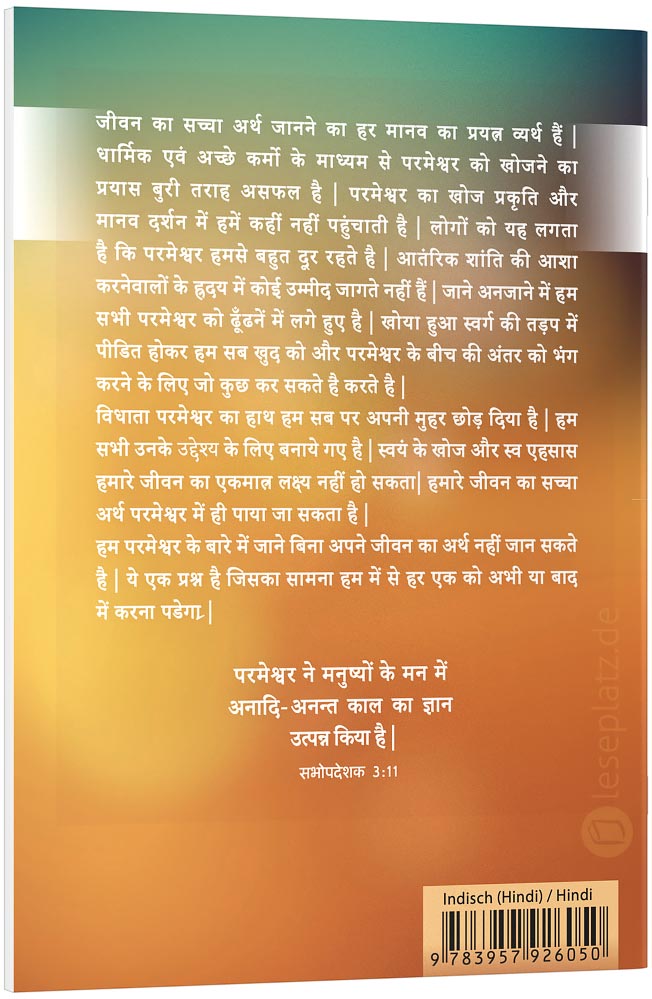 जीवन का सच्चा अर्थ जानने का हर मानव का प्रयत्न व्यर्थ हैं |
धार्मिक एवं अच्छे कर्मो के माध्यम से परमेश्वर को खोजने का
प्रयास बुरी तराह असफल है | परमेश्वर का खोज प्रकृति और
मानव दर्शन में हमें कहीं नहीं पहुंचाती है | लोगों को यह लगता
है कि परमेश्वर हमसे बहुत दूर रहते है | आतंरिक शांति की आशा
करनेवालों के ह्रदय में कोई उम्मीद जागते नहीं हैं | जाने अनजाने में हम
सभी परमेश्वर को ढूँढनें में लगे हुए है | खोया हुआ स्वर्ग की तड़प में
पीडित होकर हम सब खुद को और परमेश्वर के बीच की अंतर को भंग
करने के लिए जो कुछ कर सकते है करते है |
विधाता परमेश्वर का हाथ हम सब पर अपनी मुहर छोड़ दिया है | हम
सभी उनके उद्देश्य के लिए बनाये गए है | स्वयं के खोज और स्व एहसास
हमारे जीवन का एकमात्र लक्ष्य नहीं हो सकता| हमारे जीवन का सच्चा
अर्थ परमेश्वर में ही पाया जा सकता है |
हम परमेश्वर के बारे में जाने बिना अपने जीवन का अर्थ नहीं जान सकते
है | ये एक प्रश्न है जिसका सामना हम में से हर एक को अभी या बाद
में करना पडेगा |
परमेश्वर ने मनुष्यों के मन में
अनादि-अनन्त काल का ज्ञान
उत्पन्न किया है |
सभोपदेशक 3:11
leseplatz.de
Indisch (Hindi) / Hindi
9 783957 926050